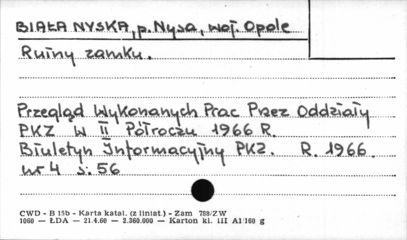 BIAŁA NYSKA, p. Nysa, woj. Opole
Ruiny zamku.
Przegląd Wykonanych Prac Przez Oddziały
PKZ W II Półroczu 1966 R.
Biuletyn Informacyjny PKZ. R. 1966
nr 4 s. 56
CWD - B 15b - Karta katal. (z liniat.) - Zam 789/ZW
1060 — ŁDA — 21.4.60 — 2.360.000 — Karton kl. III A1/160 g